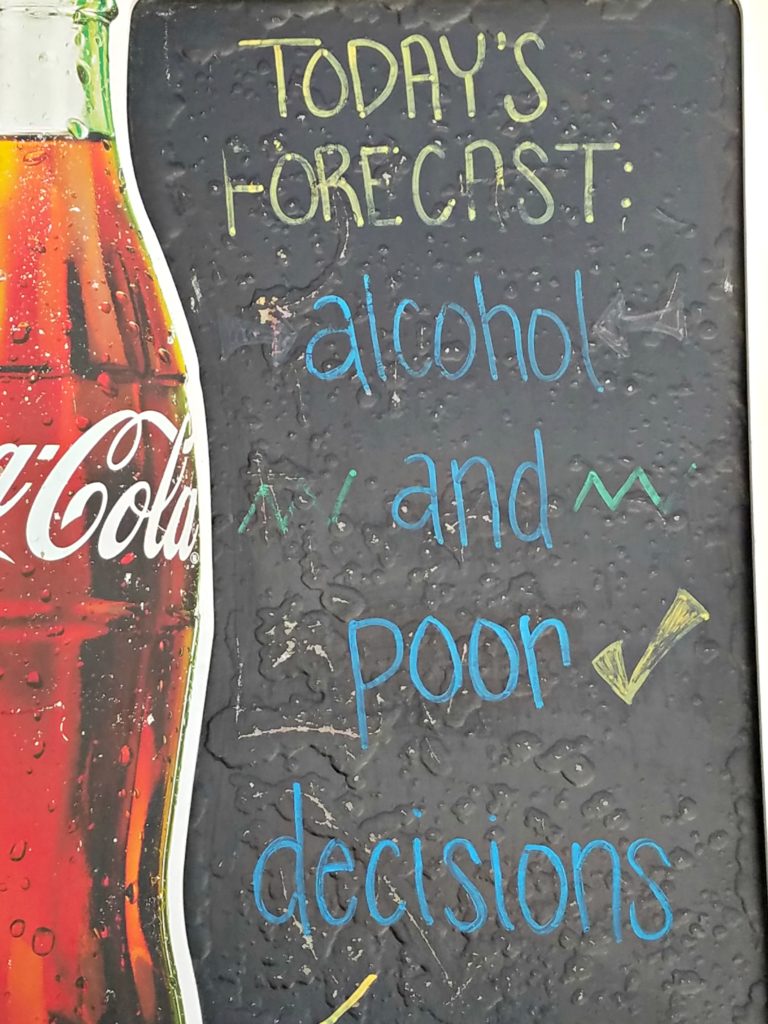 TODAY'S
FORECAST:
alcohol
and
poor
decisions
Coca-Cola